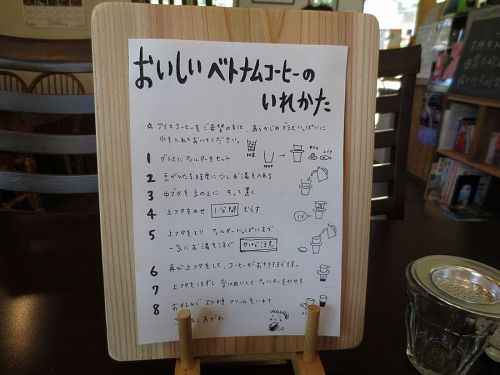 おいしいベトナムコーヒーの
いれかた
☆アイスコーヒーをご希望の方は、あらかじめグラスいっぱいに
氷を入れておいてください。
ICE
HOT
1 グラスにフィルターをセット
2 豆がひたる程度に少しお湯を入れる
3 中ブタを豆の上に
4 上ブタをのせ 1分間 むらす
5 上ブタをとり、フィルターいっぱいまで
一気にお湯を注ぐ やけど注意
6 再び上ブタをして、コーヒーがおちるまで待つ。
7 上ブタをはずし 受け皿にしてフィルターをのせる
8 お好みで 砂糖 クリームをいれて